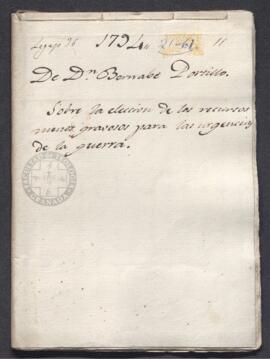 Legajo 96 1794 21-61 11
De Dn Bernabe Portillo.
Sobre la eleccion de los recursos
menos gravosos para las urgencias
de la guerra.
GRANADA